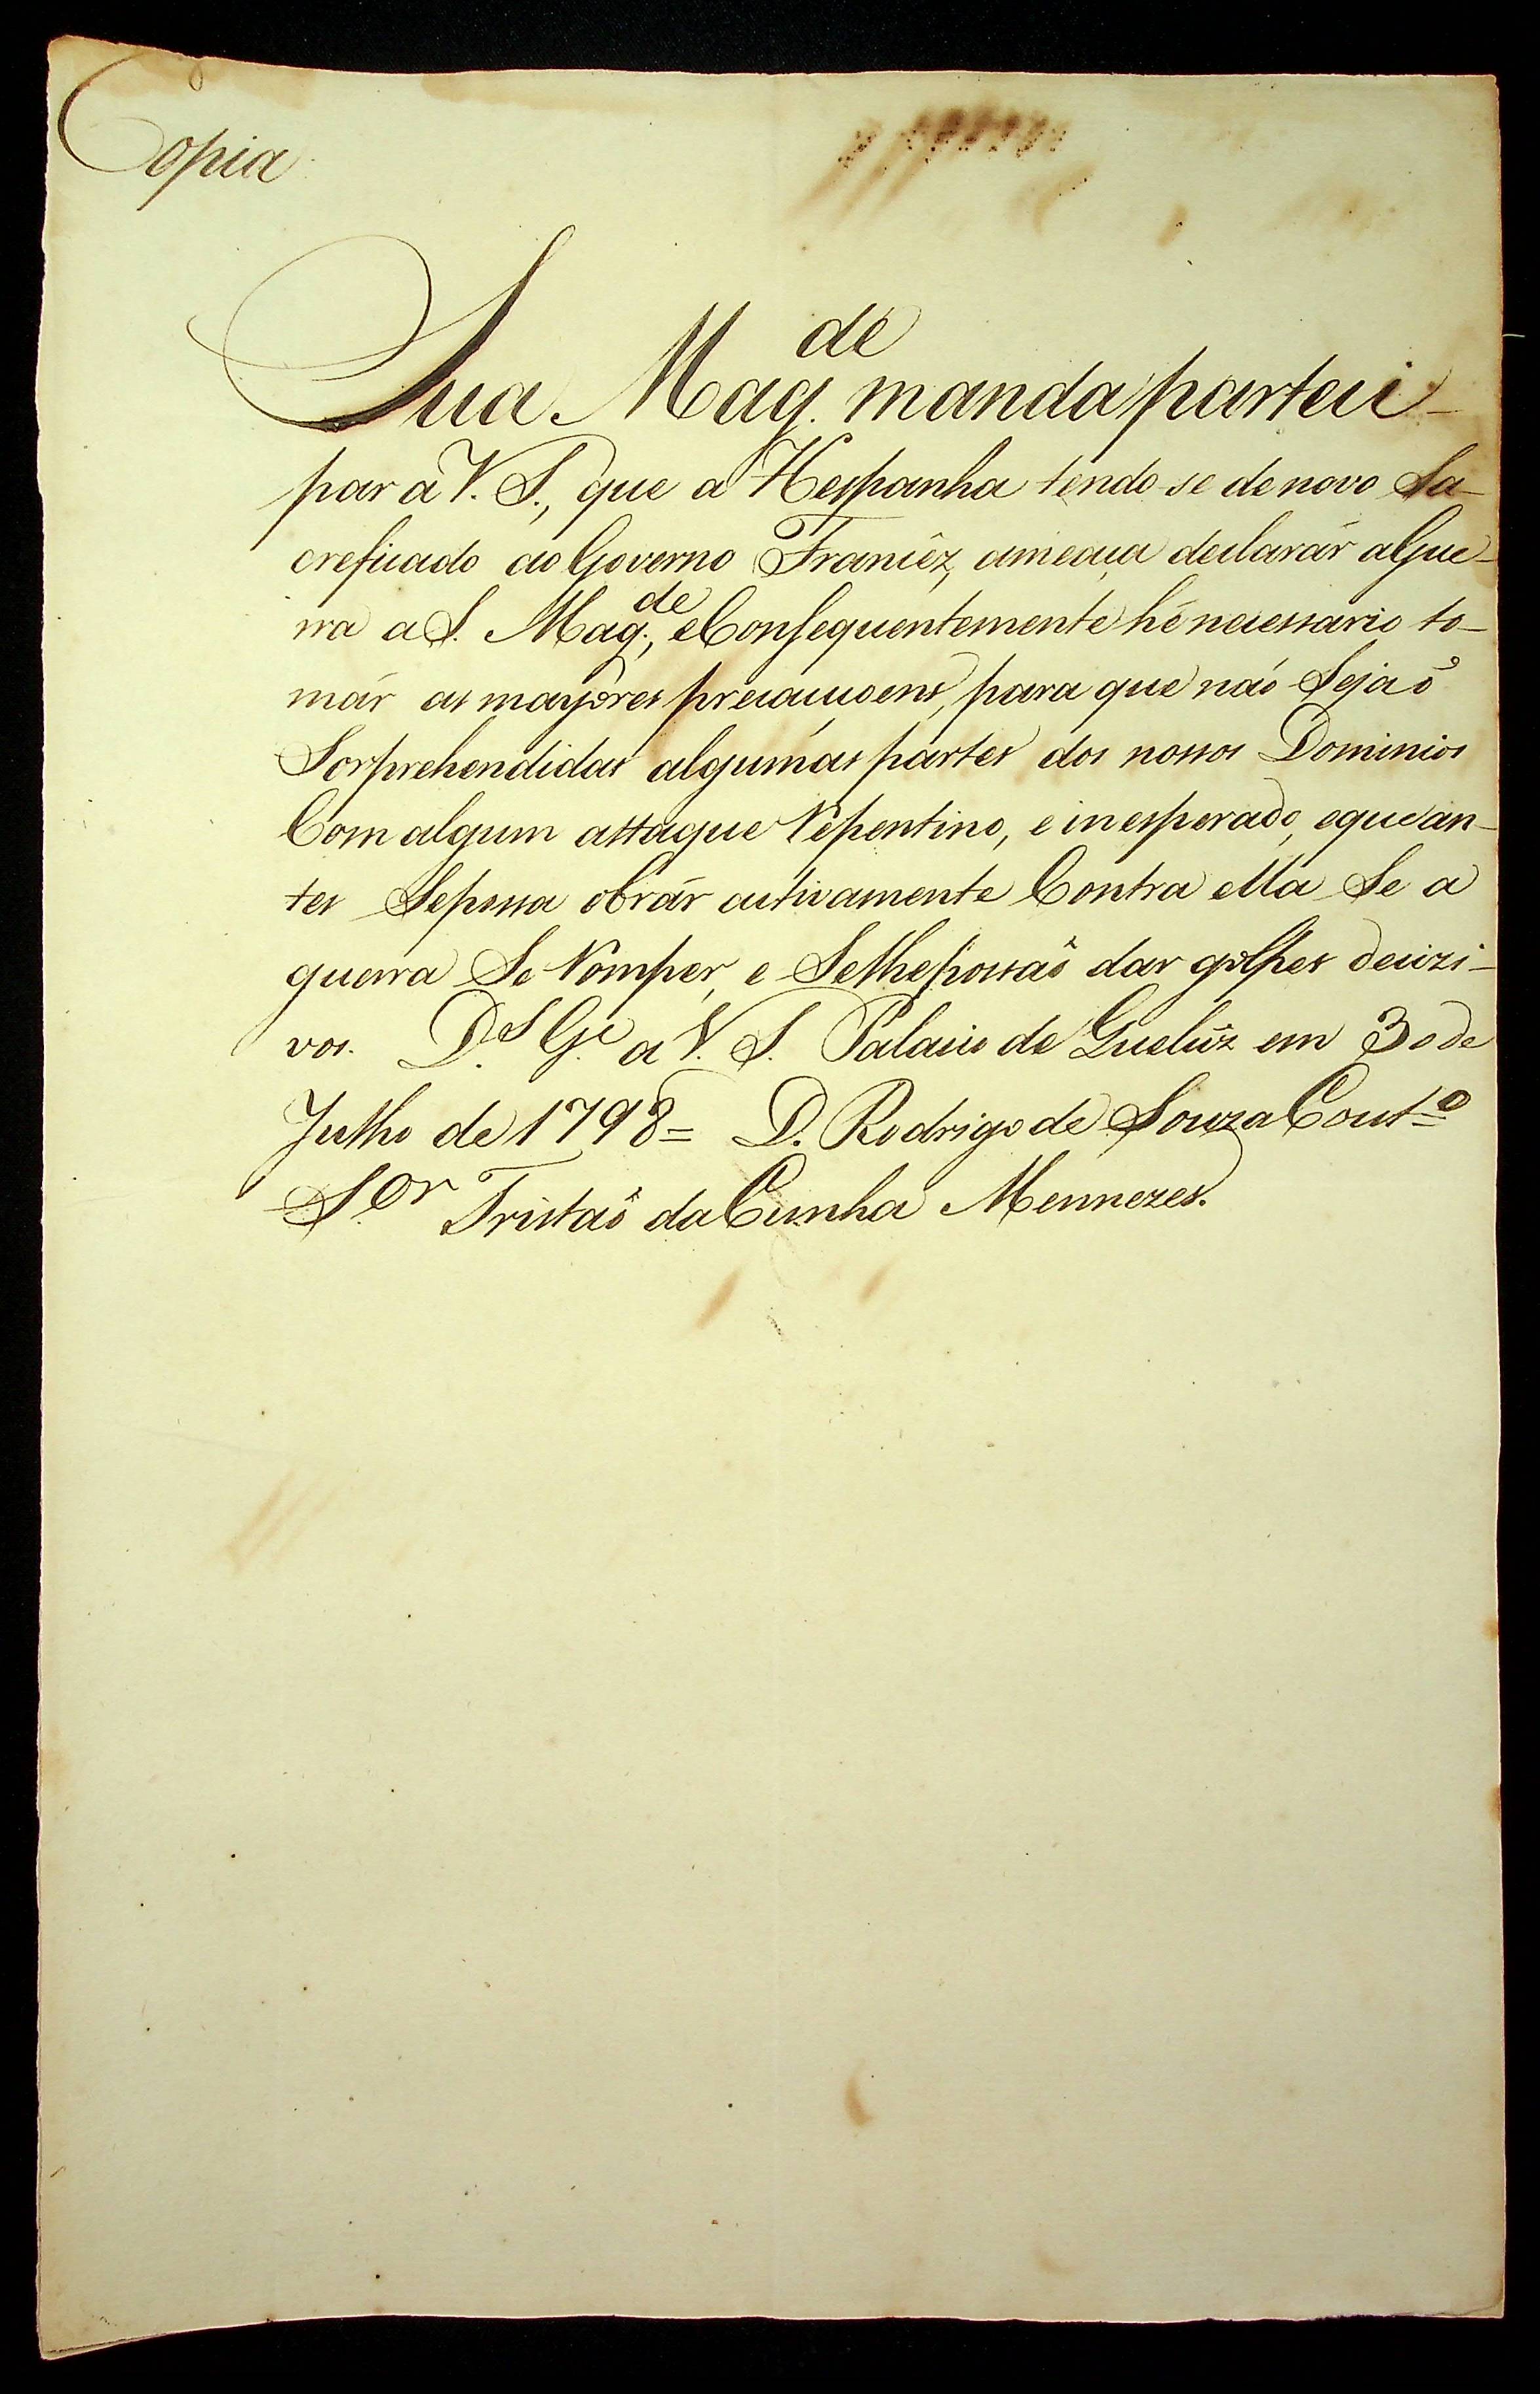 Copia
Sua Mag.de manda parteci-
par a V. S., que a Hespanha tendo-se de novo Sa-
creficado ao Governo Francêz, ameaça declarár a Gue-
rra a S. Mag.de, e Consequentemente hé necessario to-
már as mayôres precauçoens, para que naõ Sejaõ
Sorprehendidas algumas partes dos nossos Dominios
Com algum attaque repentino, e inesperado, e que an-
tes Se possa obrár activamente Contra ella Se a
guerra Se romper, e Se lhe possaõ dar golpes decizi-
vos. D.s G.e a V. S. Palacio de Queluz em 30 de
Julho de 1798 = D. Rodrigo de Souza Cout.o
S.or Tristaõ da Cunha Mennezes.